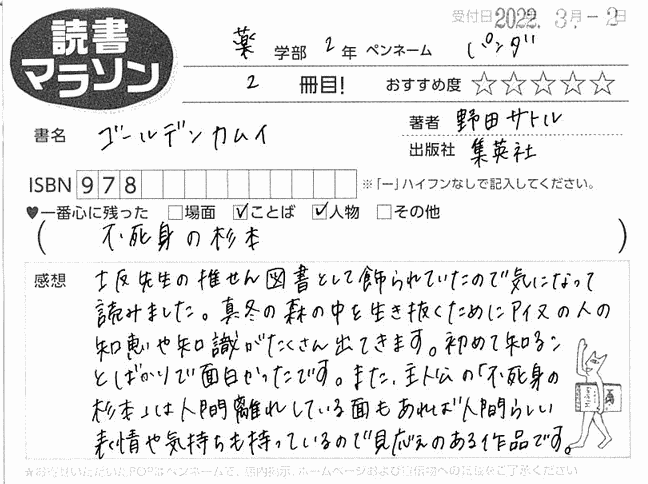 受付日 2022. 3月-2日
読書
マラソン
薬 学部 2 年 ペンネーム パンダ
2 冊目! おすすめ度 ☆☆☆☆☆
書名 ゴールデンカムイ
著者 野田サトル
出版社 集英社
ISBN 978 ※「ー」ハイフンなしで記入してください。
♥一番心に残った □場面 ☑ことば ☑人物 □その他
( 不死身の杉本 )
感想
土坂先生の推せん図書として飾られていたので気になって
読みました。真冬の森の中を生き抜くためにアイヌの人の
知恵や知識がたくさん出てきます。初めて知るこ
とばかりで面白かったです。また、主人公の「不死身の
杉本」は人間離れしている面もあれば人間らしい
表情や気持ちも持っているので見応えのある作品です。
★お寄せいただいたPOPはペンネームで、店内掲示、ホームページおよび宣伝物への記載をご了承ください